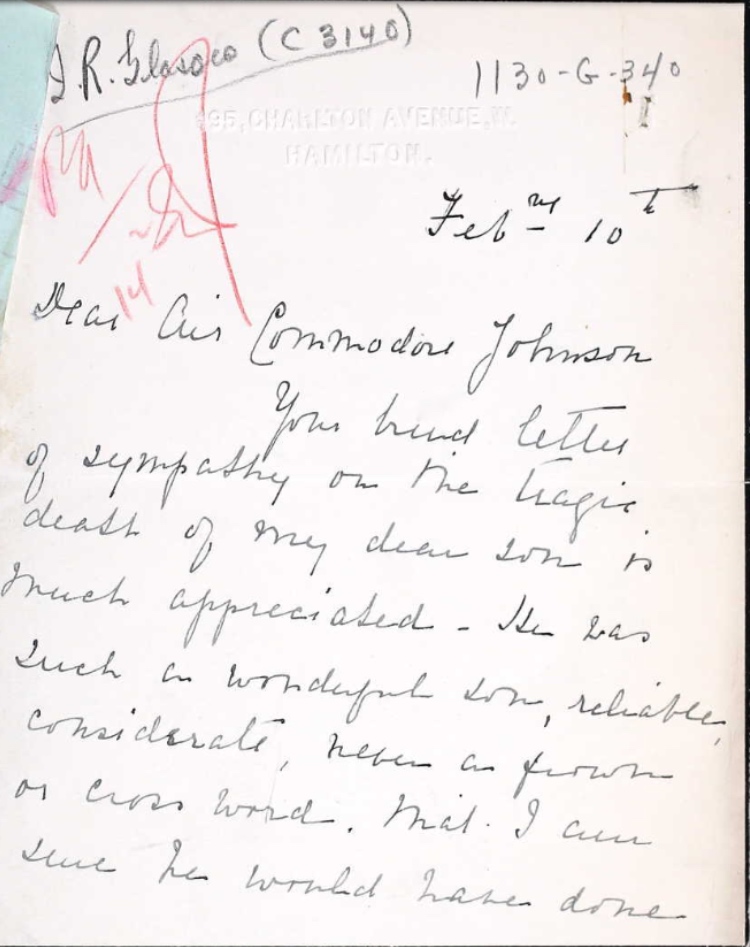 J.R. Glassco (C 3140)
1130-G-340
495, CHARLTON AVENUE, W.
HAMILTON.
Feb ry 10 th
14
Dear Air Commodore Johnson
Your kind letter
of sympathy on the tragic
death of my dear son is
much appreciated - He was
such a wonderful son, reliable,
considerate, never a frown
or cross word. That I am
sure he would have done